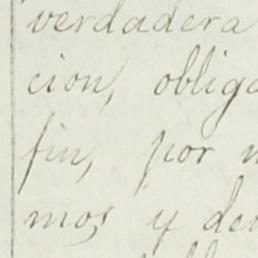 verdadera
cion, obliga
fin, por
mos y de